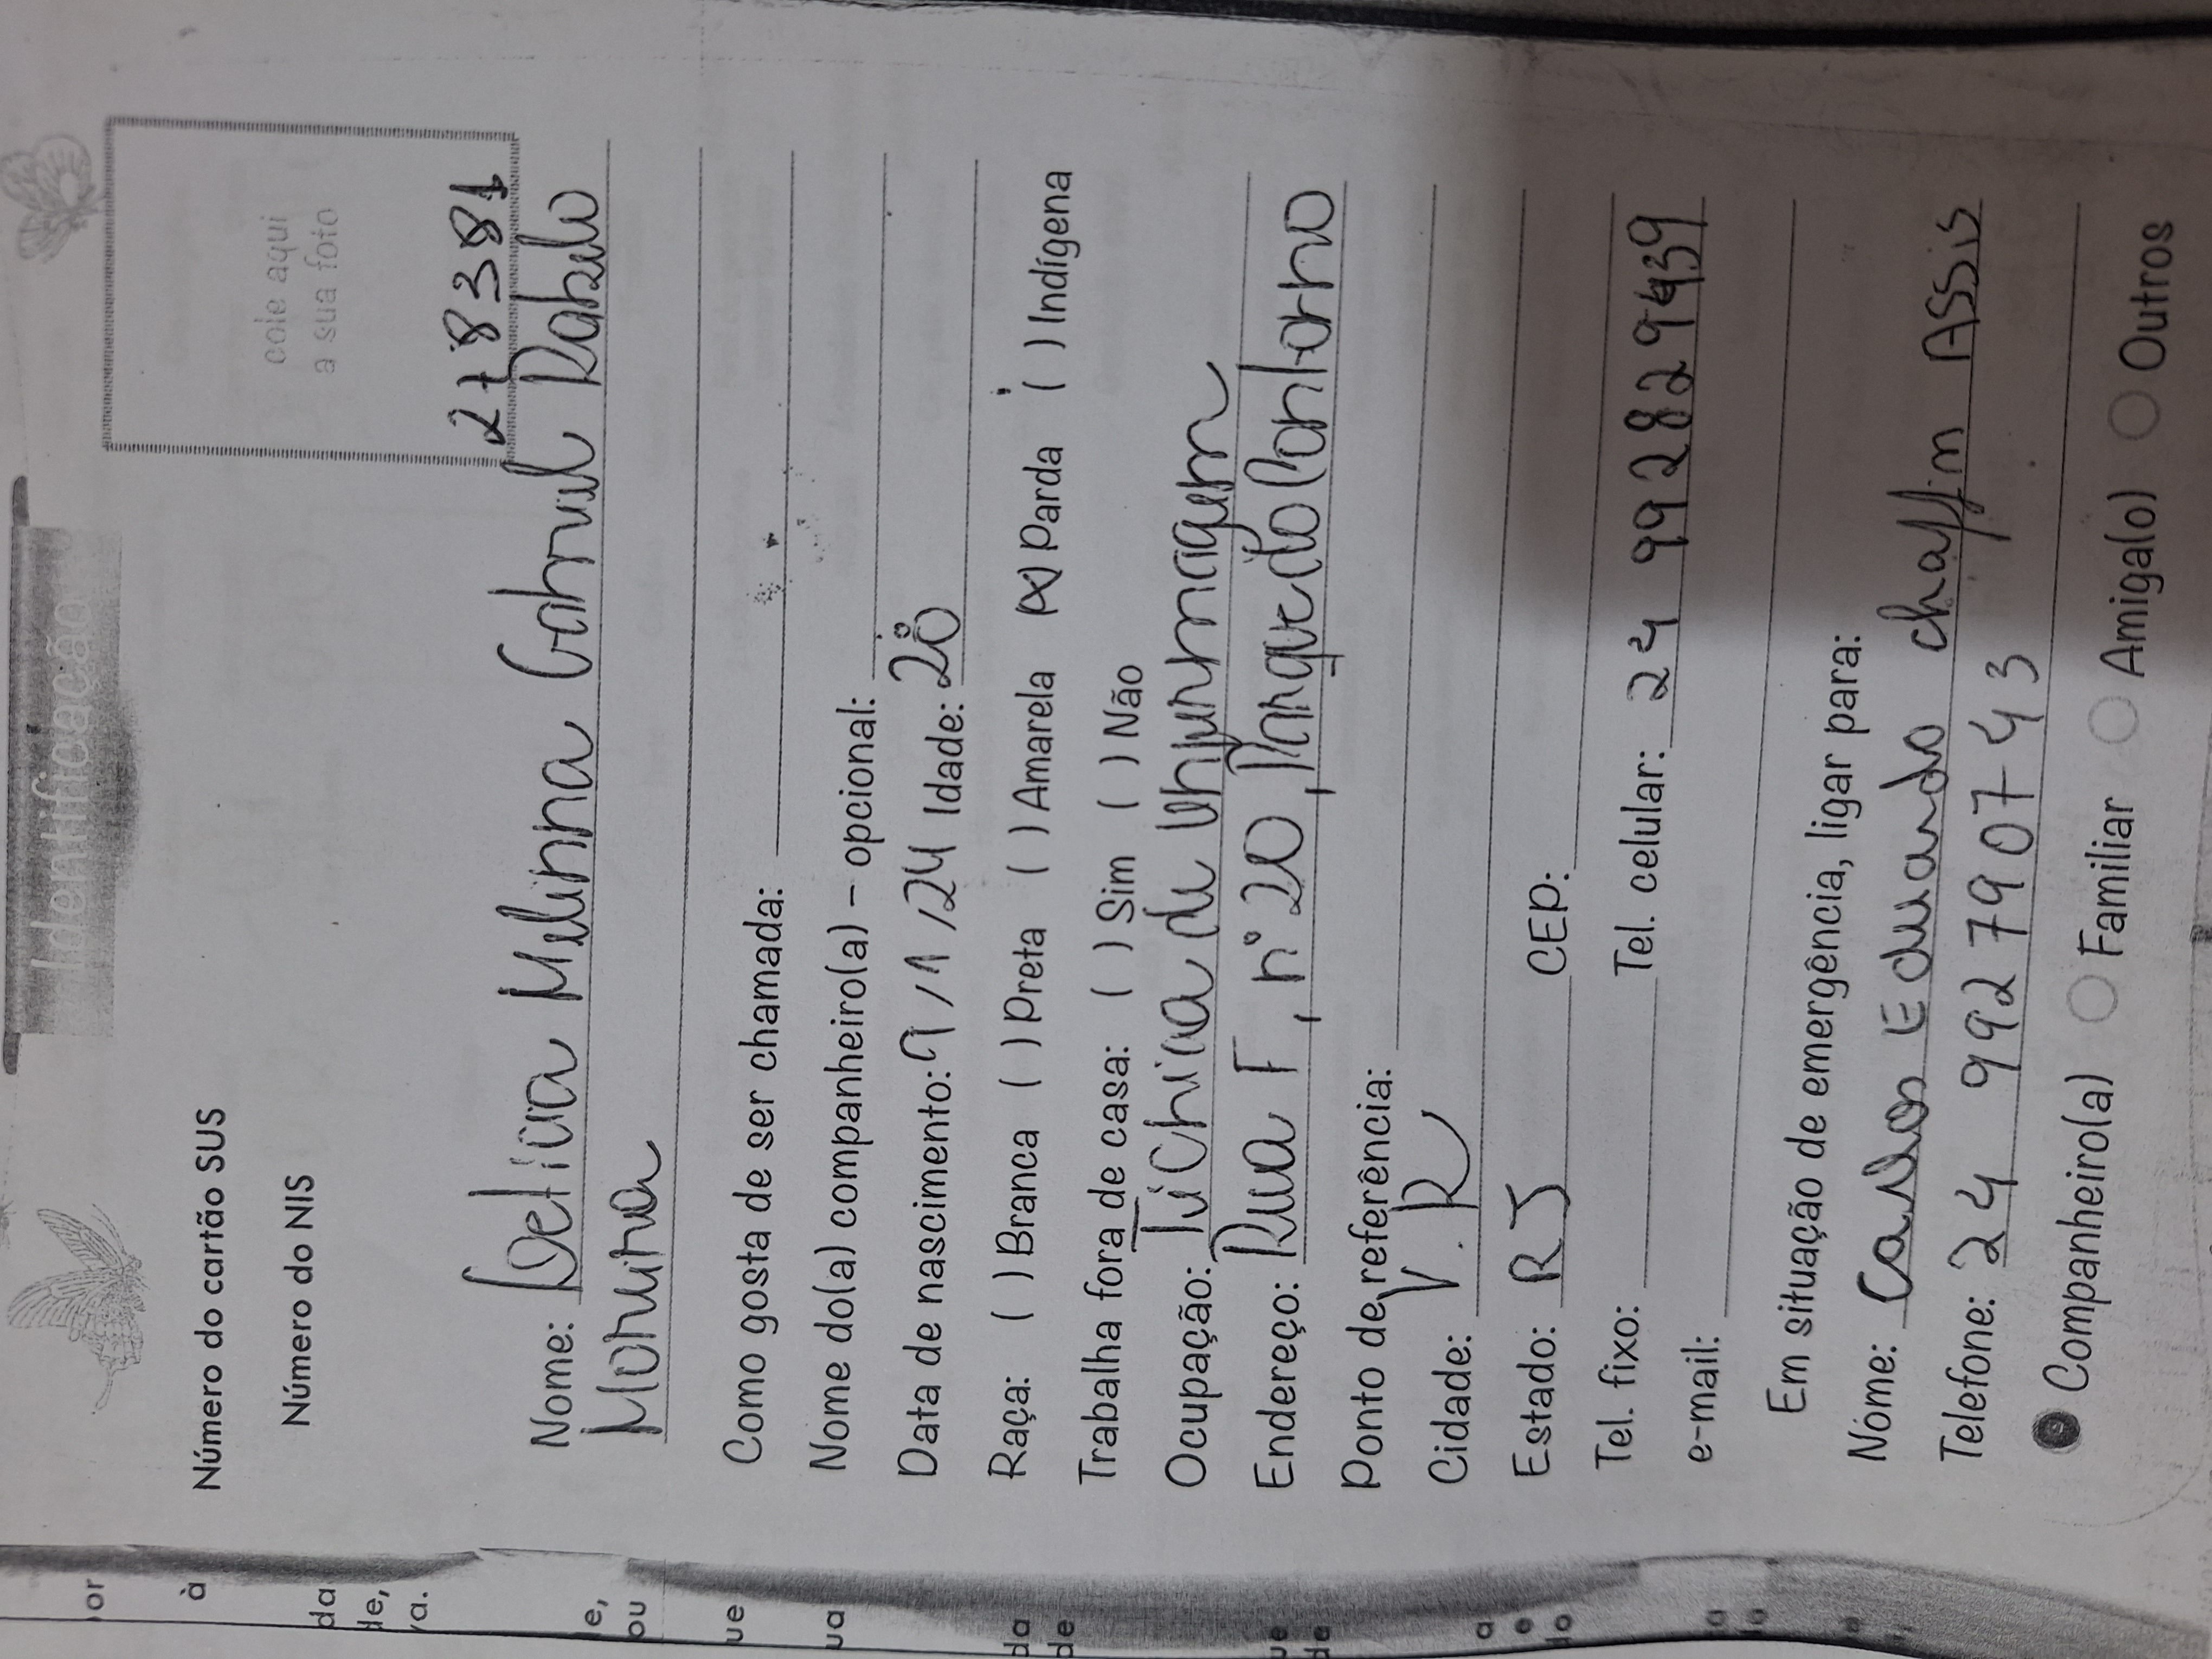 Identificação
cole aqui
a sua foto
Número do cartão SUS
Número do NIS
278381
Nome: Melinna Gabriel Rabelo
Como gosta de ser chamada:
Nome do(a) companheiro(a) – opcional:
Data de nascimento: 9/1/24 Idade: 20
Raça: ( ) Branca ( ) Preta ( ) Amarela (x) Parda ( ) Indígena
Trabalha fora de casa: ( ) Sim ( ) Não
Ocupação: de enfermagem
Endereço: Rua F, nº 20, Parque do Contorno
Ponto de referência:
Cidade: V.R
Estado: RJ CEP:
Tel. fixo: Tel. celular: 24
e-mail:
Em situação de emergência, ligar para:
Nome: Carlos Eduardo Assis
Telefone: 24 992790743
Companheiro(a) Familiar Amiga(o) Outros
or
à
da
de,
va.
e,
ou
ue
ua
da
de
ue
de
a
e
lo